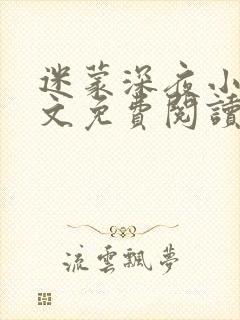 迷蒙深夜小
文免費閱讀
流雲飄夢